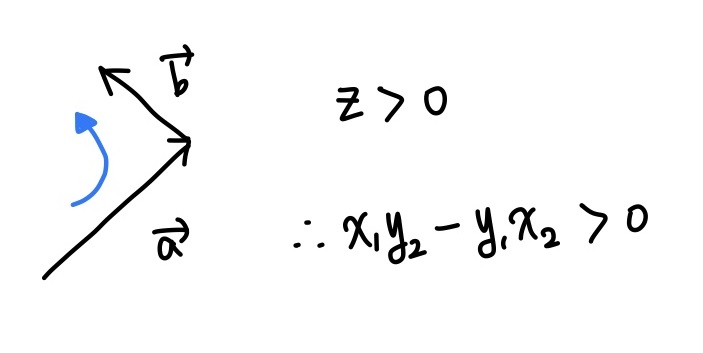 b⃗
z > 0
a⃗
∴ x₁y₂ − y₁x₂ > 0